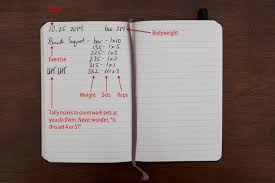 Date
10.25.2014 bw: 214
Bodyweight
Back Squat - bar - 1x10
135 - 1x5
Exercise 225 - 3
285 - 2
315 - 1x1
352 - 10x3
Weight Sets Reps
Tally marks to count work sets as
you do them. Never wonder, "Is
this set 4 or 5?"